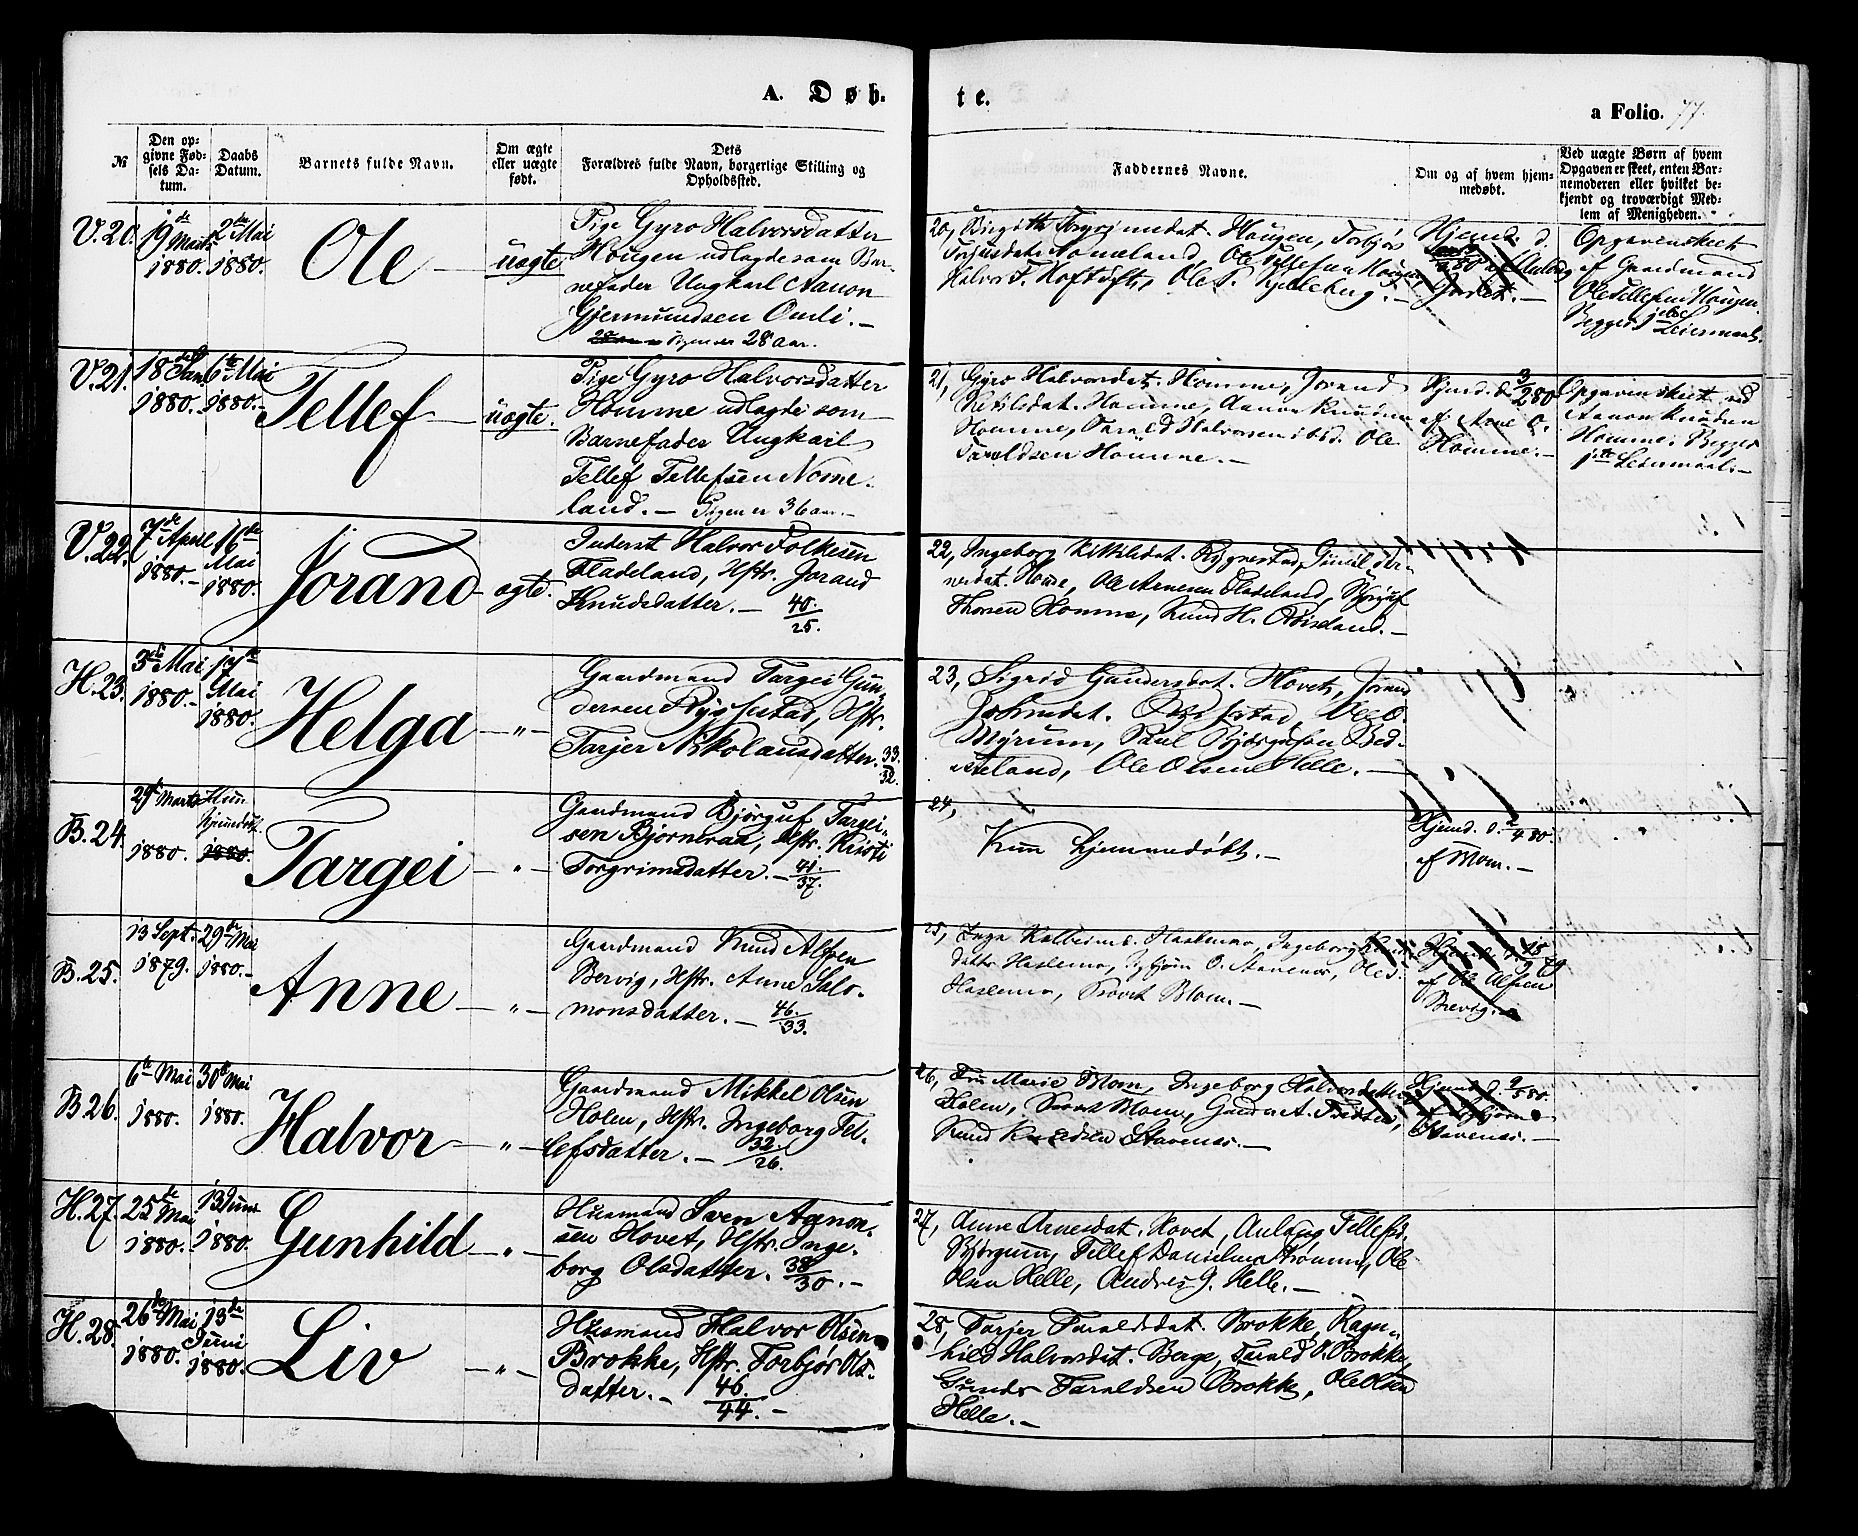 A. Døb-
te.
a Folio. 77.
№
Den op-
givne Fød-
sels Da-
tum.
Daabs
Datum.
Barnets fulde Navn.
Om ægte
eller uægte
født.
Dets
Forældres fulde Navn, borgerlige Stilling og
Opholdssted.
Faddernes Navne.
Om og af hvem hjem-
medøbt.
Ved uægte Børn af hvem
Opgaven er skeet, enten Bar-
nemoderen eller hvilket be-
kjendt og troværdigt Med-
lem af Menigheden.
V. 20.
19de Marts
1880.
2den Mai
1880.
Ole
uægte
Pige Gyro Halvorsdatter
Hougen udlagde som Bar-
nefader Ungkarl Aanon
Gjermundsen Omli.
Pigen er 28 aar.
20, Birgith Torgrimsdat. Hougen, Torbjør
Tarjusdat. Nomeland, Ole Tellefsen Hougen,
Halvor T. Hoftuft, Ole T. Kjelleberg.
Hjemd. d.
Opgaven skeet
af Gaardmand
Ole Tellefsen Hougen.
Begges 1ste Leiermaal.
V. 21.
18de Jan.
1880.
6te Mai
1880.
Tellef
uægte.
Pige Gyro Halvorsdatter
Homme udlagde som
Barnefader Ungkarl
Tellef Tellefsen Nome-
land. Pigen er 36 aar.
21, Gyro Halvorsdat. Homme, Jorand
Ketilsdat. Homme, Aanon Knudsen
Homme, Tarald Halvorsen ibid. Ole
Taraldsen Homme.
Hjemd. d. 3/2 80
af Arne O.
Homme.
Opgaven skeet ved
Aanon Knudsen
Homme. Begges
1ste Leiermaal.
V. 22.
7de April
1880.
16de
Mai
1880.
Jorand
ægte.
Inderst Halvor Folkesen
Fladeland, Hstr. Jorand
Knudsdatter. 40/25.
22, Ingeborg Kittilsdat. Rygnestad, Gunil Ar-
nesdat. Homme, Ole Arnesen Fladeland, Bjørguf
Thorsen Homme, Knud H. Røiseland.
H. 23.
3de Mai
1880.
17de
Mai
1880.
Helga
"
Gaardmand Targei Gun-
dersen Rysstad, Hstr.
Tarjer Nikolausdatter. 33/32.
23, Sigrid Gundersdat. Hovet, Jorand
Rysstad, Ole O.
Myrum, Paul Bjørgufsen Bed-
steland, Ole Olsen Helle.
B. 24.
29 Marts
1880.
Kun
hjemmedøbt
1880.
Targei
"
Gaardmand Bjørguf Targei-
sen Bjørnraa, Hstr. Kristi
Torgrimsdatter. 41/37.
24,
Kun hjemmedøbt.
Hjemd. d. /4 80.
af Mom.
B. 25.
13 Sept.
1879.
29de Mai
1880.
Anne
"
Gaardmand Knud Alfsen
Bervig, Hstr. Anne Salo-
monsdatter. 46/33.
25, Inga Haslemo, Ingeborg
datter Haslemo, O. Stavenes, Ole
Haslemo, Blom.
af Ole Alfsen
Brevig.
B 26.
6te Mai
1880.
30de Mai
1880.
Halvor
"
Gaardmand Mikkel Olsen
Holen, Hstr. Ingeborg Tel-
lefsdatter. 32/26.
26, Fru Marie Blom, Ingeborg Halvorsdatter
Holen, Blom, Gunder A. Trædten,
Knud Knudsen Stavenes.
Hjemd. d. 9/5 80.
Stavenes.
H. 27.
25de
Mai
1880.
13 Juni
1880.
Gunhild
"
Husmand Sven Aanon-
sen Hovet, Hstr. Inge-
borg Olsdatter. 38/30.
27, Anne Arnesdat. Hovet, Aulaug Tellefsd.
Bjørgum, Tellef Danielsen Strømme, Ole
Olsen Helle, Andres G. Helle.
H. 28.
26de Mai
1880.
13de
Juni
1880.
Liv
"
Husmand Halvor Olsen
Brokke, Hstr. Torbjør Ols-
datter. 46/44.
28, Tarjer Taraldsdat. Brokke, Ragn-
hild Halvorsdat. Berge, Tarald O. Brokke,
Gunder Taraldsen Brokke, Ole Olsen
Helle.